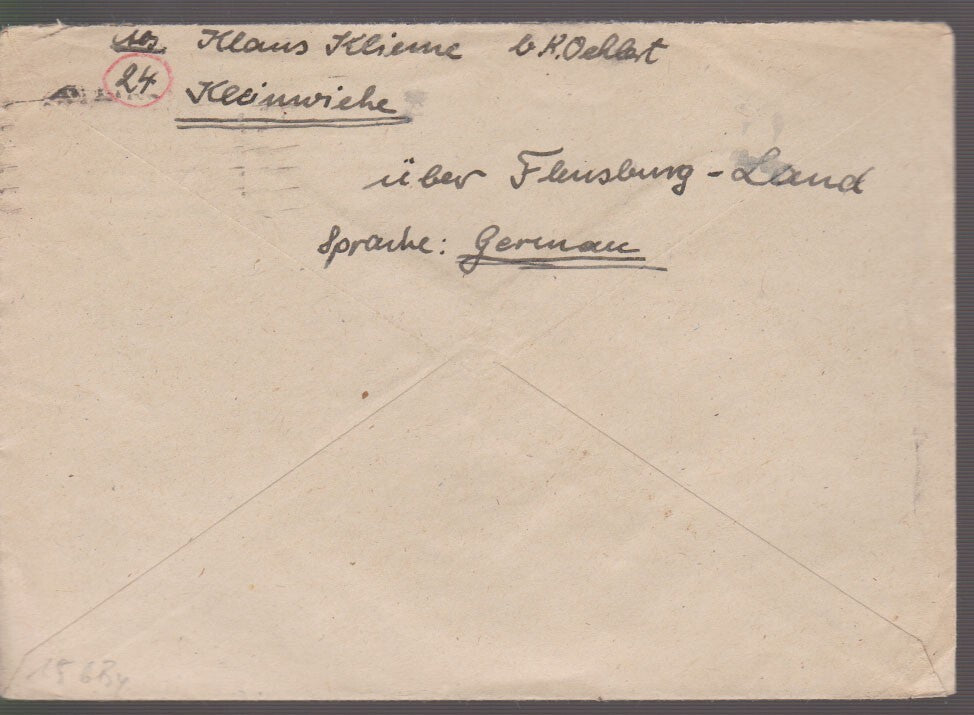 Abs. Klaus Klieme b. K. Oehlert
24 Kleinwiehe
über Flensburg-Land
Sprache: German